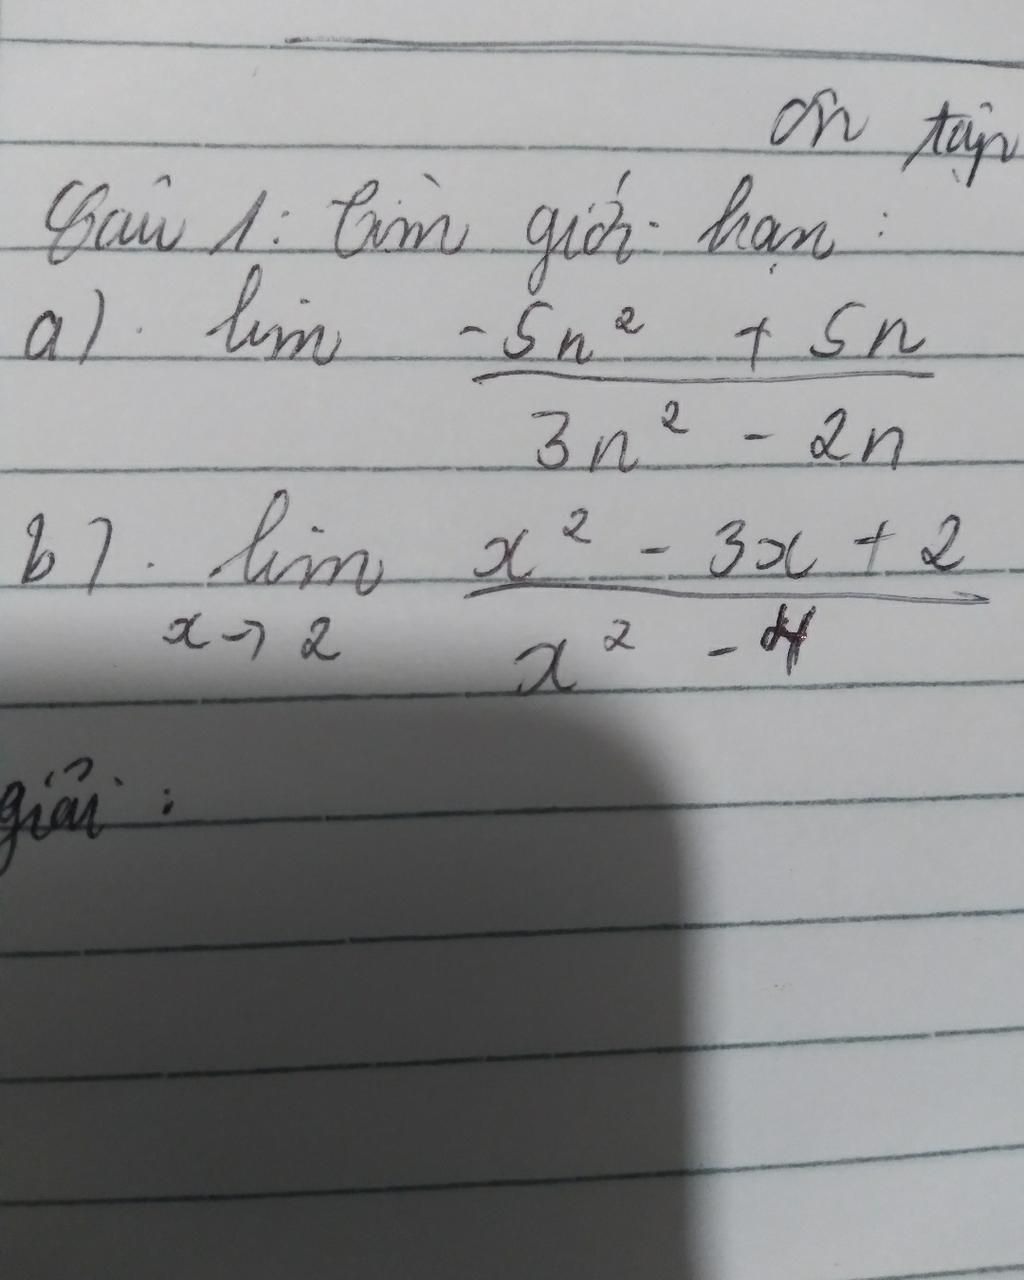 ôn tập
Câu 1: Tìm giới hạn:
a). lim (-5n² + 5n)/(3n² - 2n)
b). lim x→2 (x² - 3x + 2)/(x² - 4)
giải: